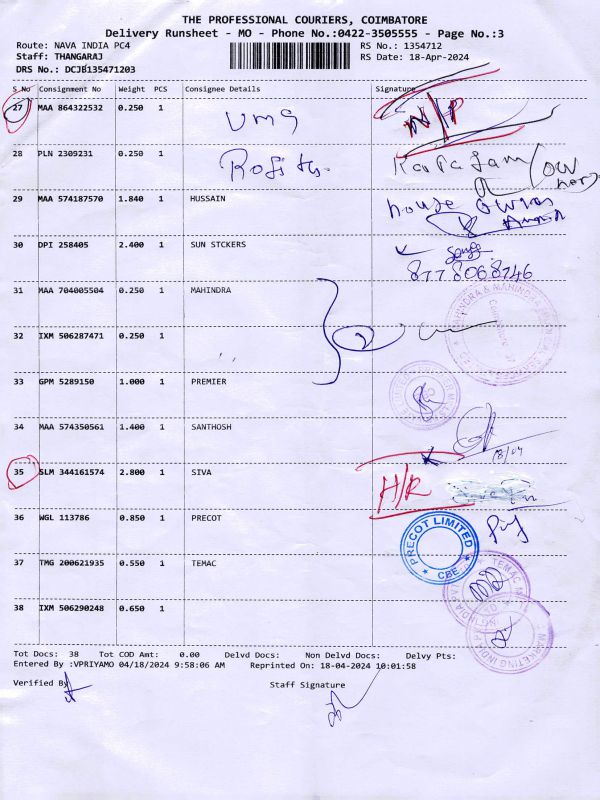 THE PROFESSIONAL COURIERS, COIMBATORE
Delivery Runsheet - MO - Phone No.:0422-3505555 - Page No.:3
Route: NAVA INDIA PC4 RS No.: 1354712
Staff: THANGARAJ RS Date: 18-Apr-2024
DRS No.: DCJB135471203
S No Consignment No Weight PCS Consignee Details Signature
27 MAA 864322532 0.250 1 N/P
28 PLN 2309231 0.250 1
29 MAA 574187570 1.840 1 HUSSAIN house
30 DPI 258405 2.400 1 SUN STCKERS
8778068746
31 MAA 704005504 0.250 1 MAHINDRA
32 IXM 506287471 0.250 1
33 GPM 5289150 1.000 1 PREMIER
34 MAA 574350561 1.400 1 SANTHOSH
18/04
35 SLM 344161574 2.800 1 SIVA H/R
36 WGL 113786 0.850 1 PRECOT
PRECOT LIMITED
CBE
37 TMG 200621935 0.550 1 TEMAC
38 IXM 506290248 0.650 1
Tot Docs: 38 Tot COD Amt: 0.00 Delvd Docs: Non Delvd Docs: Delvy Pts:
Entered By :VPRIYAMO 04/18/2024 9:58:06 AM Reprinted On: 18-04-2024 10:01:58
Verified By Staff Signature